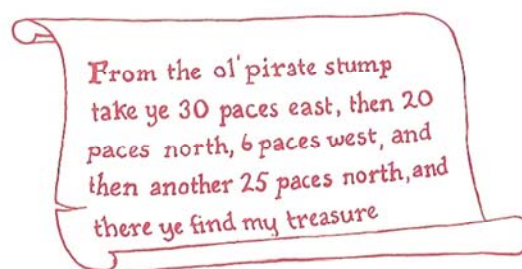 From the ol' pirate stump
take ye 30 paces east, then 20
paces north, 6 paces west, and
then another 25 paces north, and
there ye find my treasure